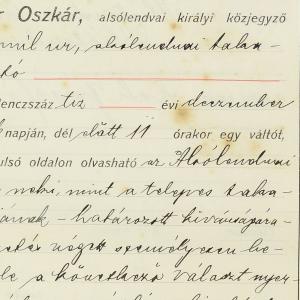 r Oszkár, alsólendvai királyi közjegyző
mil ur, alsólendvai taka-
kó
lenczszáz tiz évi deczember
napján, dél előtt 11 órakor egy váltót,
ulsó oldalon olvasható az Alsólendvai
neki, mint a telepes taka-
jának - határozott kivánságára -
végett személyesen be-
le a következő választ nyer-